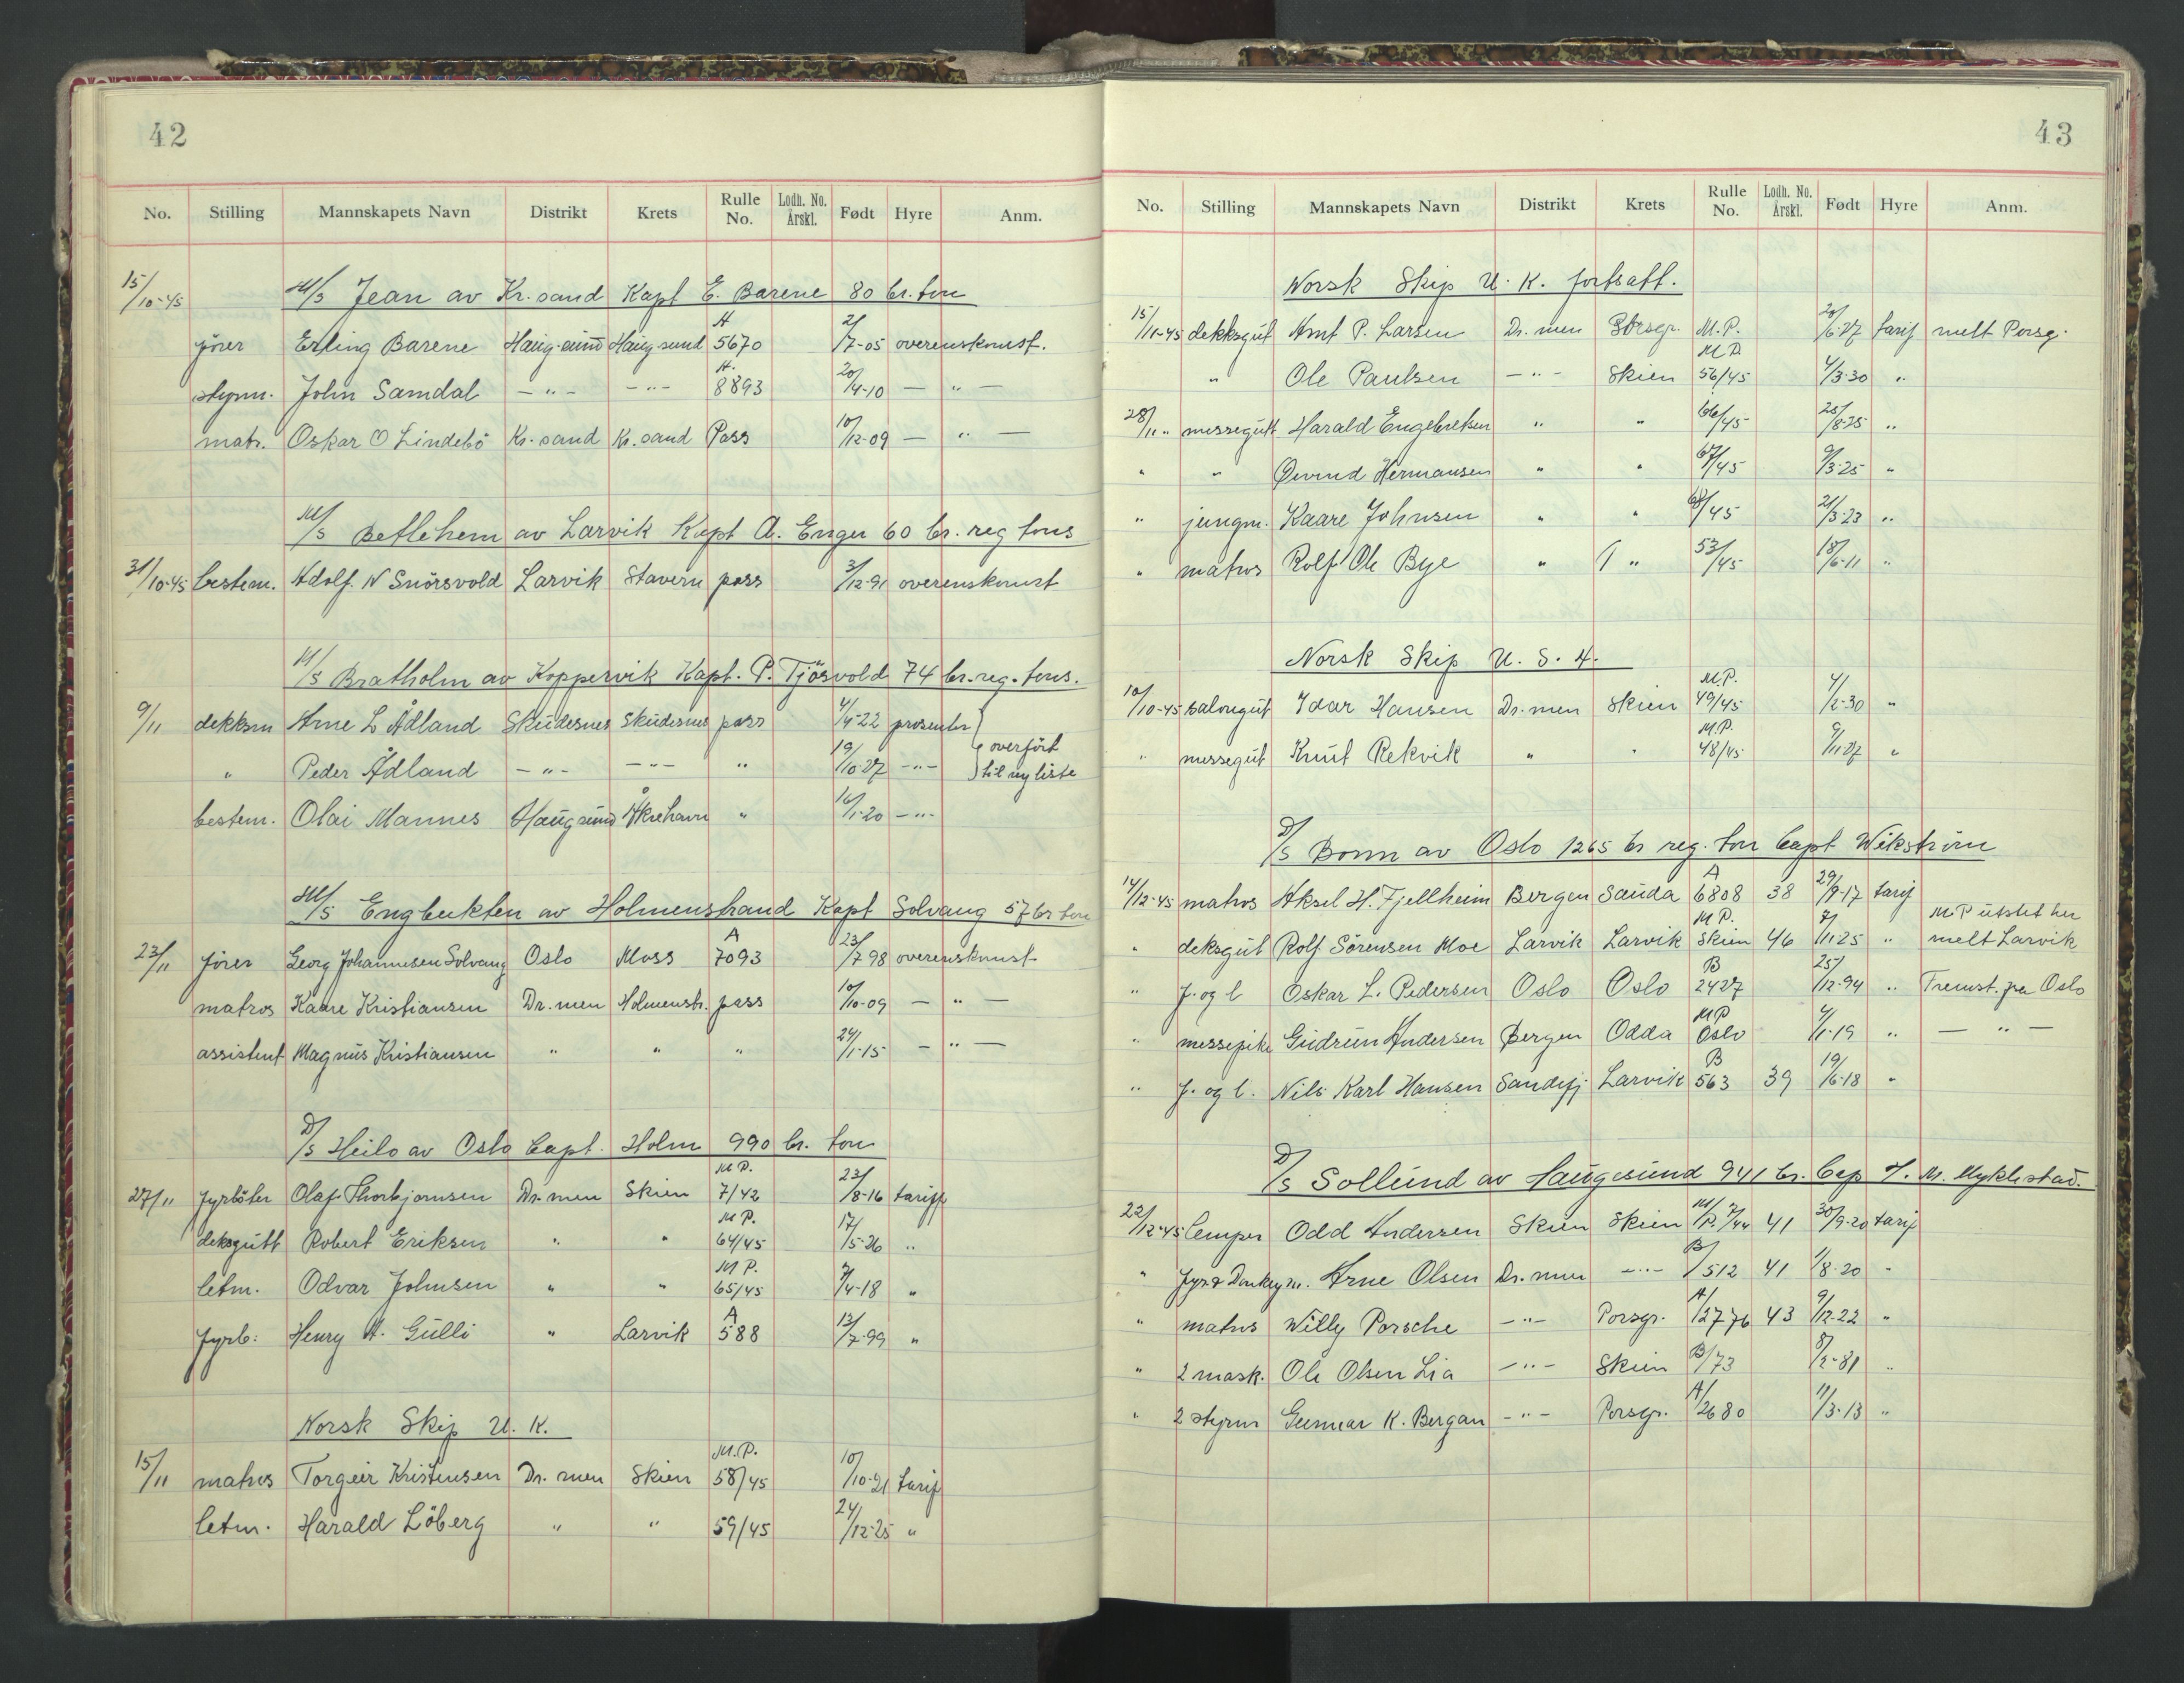 42
No. Stilling Mannskapets Navn Distrikt Krets Rulle No. Lodh. No. Årskl. Født Hyre Anm.
15/10-45 M/S Jean av Kr.sand Kapt E. Barene 80 br. ton
fører Erling Barene Haug.sund Haugsund A 5670 2/7-05 overenskomst.
styrm. John Samdal -"- -"- A. 8893 20/4-10 - " -
matr. Oskar O Lindebö Kr.sand Kr.sand Pass 10/12-09 - " -
M/S Betlehem av Larvik Kapt A. Enger 60 br. reg tons
31/10-45 bestem. Adolf. N Snörsvold Larvik Stavern pass 3/12-91 overenskomst
M/S Bratholm av Koppervik Kapt. P. Tjösvold 74 br. reg. tons.
9/11 dekksm Arne L Ådland Skudesnes Skudesnes pass 4/4-22 prosenter
" Peder Ådland -"- -"- " 19/10-27 -"- } overfört til ny liste
bestem. Olai Mannes Haugsund Åkrehavn " 16/1-20 -"-
M/S Engbukten av Holmenstrand Kapt Solvang 57 br ton
23/11 fører Georg Johannesen Solvang Oslo Moss A 7093 23/7-98 overenskomst
matros Kaare Kristiansen Dr.men Holmenstr. pass 10/10-09 - " -
assistent Magnus Kristiansen " " " 24/1-15 - " -
D/S Heilo av Oslo Capt. Holm 990 br. ton
27/11 fyrböter Olaf Thorbjørnsen Dr.men Skien M.P. 7/42 23/8-16 tariff
deksgutt Robert Eriksen " " M P. 64/45 17/5-26 "
letm. Odvar Johnsen " " M P. 65/45 7/4-18 "
fyrb. Henry A. Gulli " Larvik A 588 13/7-99 "
Norsk Skip U. K.
15/11 matros Torgeir Kristensen Dr. men Skien M.P. 58/45 10/10-21 tarif
letm. Harald Löberg " " 59/45 24/12-25 "
43
No. Stilling Mannskapets Navn Distrikt Krets Rulle No. Lodh. No. Årskl. Født Hyre Anm.
Norsk Skip U. K. fortsatt.
15/11-45 dekksgut Arnt P. Larsen Dr. men Porsgr. M.P. 20/6-27 tarif melt Porsg.
" Ole Paulsen -"- Skien M P. 56/45 4/3-30 "
28/11 " messegutt Harald Engebretsen " " 66/45 25/8-25 "
" " Øivind Hermansen " " 67/45 9/3-25 "
" jungm. Kaare Johnsen " " 68/45 21/3-23 "
" matros Rolf Ole Bye " " 53/45 18/6-11 "
Norsk Skip U. S. A.
10/10-45 salongut Idar Hansen Dr. men Skien M.P. 49/45 4/2-30 "
" messegut Knut Rekvik " " M.P. 48/45 9/11-27 "
D/S Bonn av Oslo 1265 br reg. ton Capt Wikström
14/12-45 matros Aksel H. Fjellheim Bergen Sauda A 6808 38 29/9-17 tarif
" deksgut Rolf Sörensen Moe Larvik Larvik M P. Skien 46 7/11-25 " M.P utstet her melt Larvik
" f. og l Oskar L. Pedersen Oslo Oslo B 2427 25/12-94 " Fremst. fra Oslo
" messepike Gudrun Andersen Bergen Odda M P Oslo 4/1-19 " - " -
" f. og l. Nils Karl Hansen Sandefj Larvik B 563 39 19/6-18 "
D/S Sollund av Haugesund 941 br. Cap H. M. Myklestad.
22/12-45 lemper Odd Andersen Skien Skien M/P. 7/44 41 30/9-20 tarif
" fyr & Donkeym. Arne Olsen Dr. men -"- B/512 41 1/8-20 "
" matros Willy Porsche -"- Porsgr. A/2776 43 9/12-22 "
" 2 mask. Ole Olsen Lia -"- Skien B/73 8/2-81 "
" 2 styrm Gunnar K. Bergan -"- Porsgr. A/2680 11/3-13 "